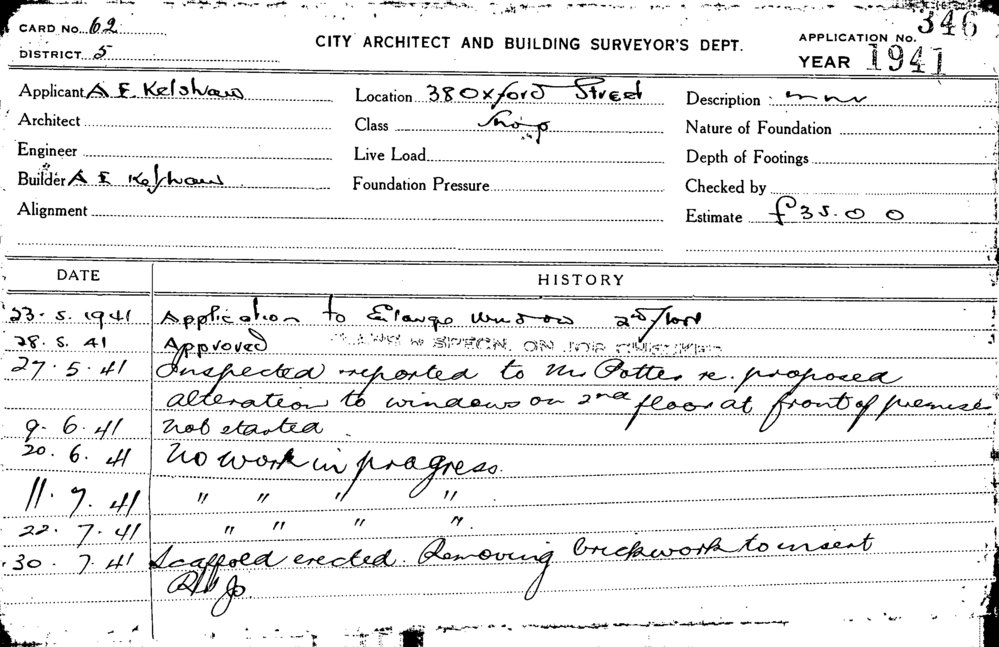 CARD No. 62
DISTRICT 5
CITY ARCHITECT AND BUILDING SURVEYOR'S DEPT.
APPLICATION No. 346
YEAR 1941
Applicant A E Kelshaw
Architect
Engineer
Builder A E Kelshaw
Alignment
Location 38 Oxford Street
Class Shop
Live Load
Foundation Pressure
Description
Nature of Foundation
Depth of Footings
Checked by
Estimate £35.0 0
DATE HISTORY
23.5.1941 Application to Enlarge window 2nd floor
28.5.41 Approved PLANS & SPECN. ON JOB CHECKED
27.5.41 Inspected reported to Mr Potter re. proposed
alteration to windows on 2nd floor at front of premises
9.6.41 Not started
20.6.41 No work in progress.
11.7.41 " " " "
22.7.41 " " " "
30.7.41 Scaffold erected. Removing brickwork to insert